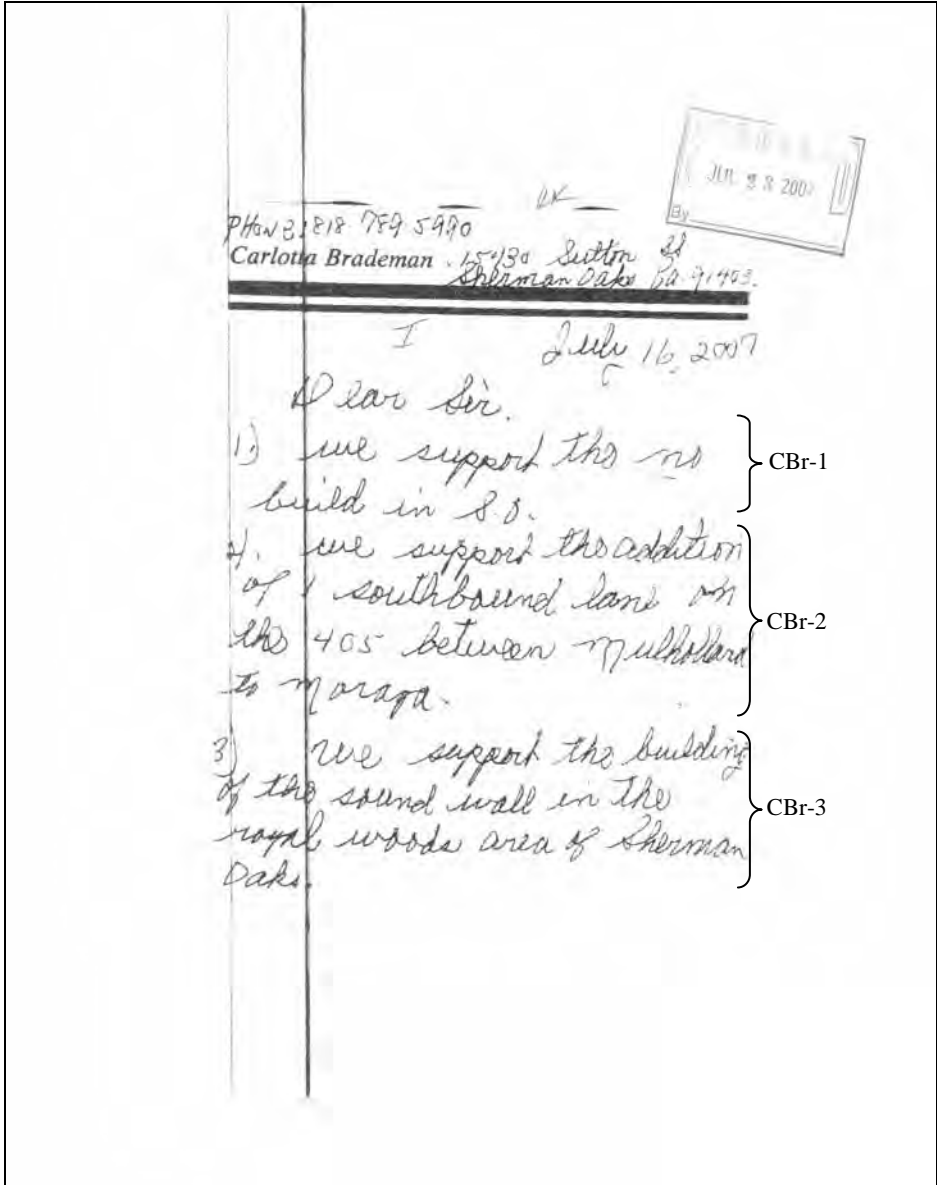 JUL 2 3 200
By
PHONE 818 789 5990
Carlotta Brademan 15430 Sutton St
Sherman Oaks Ca. 91403.
I
July 16, 2007
Dear Sir.
1.) we support the no CBr-1
build in S.O.
2). we support the addition
of 1 southbound lane on
the 405 between Mulholland CBr-2
to Moraga.
3) we support the building
of the sound wall in the CBr-3
royal woods area of Sherman
Oaks.